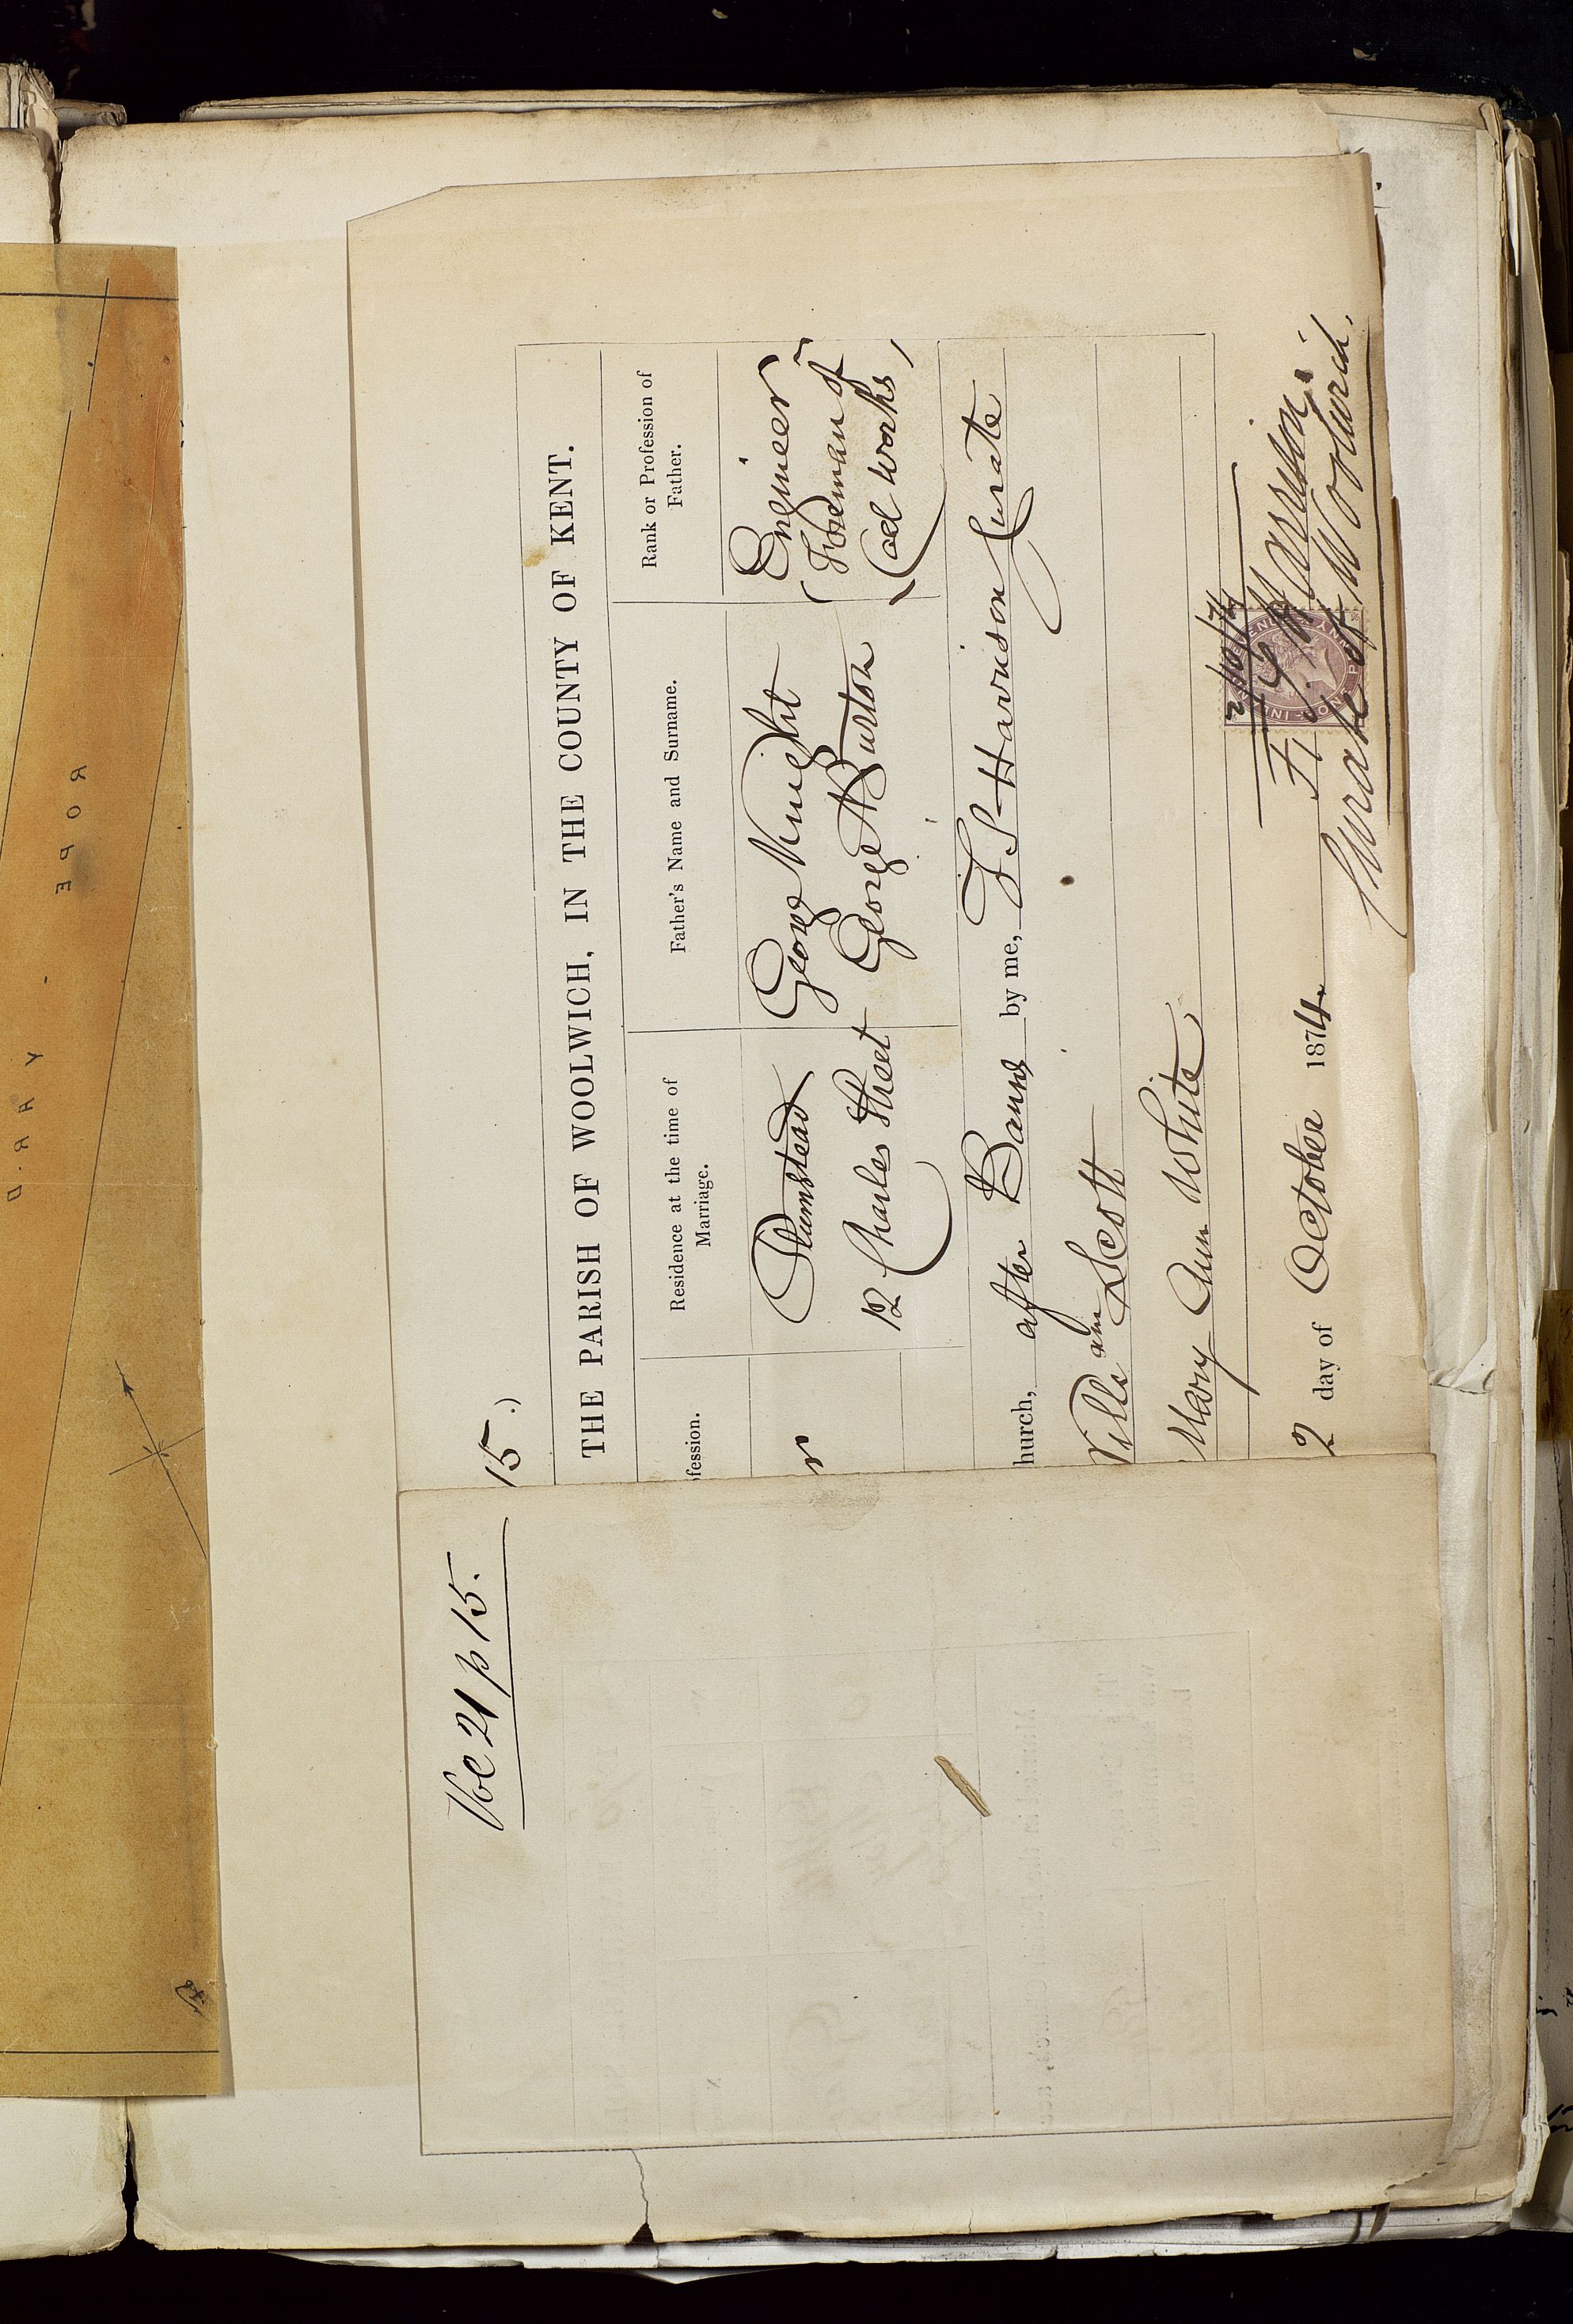 ROPE
YARD
Vol 21 p 15.
15.)
THE PARISH OF WOOLWICH, IN THE COUNTY OF KENT.
fession.
Residence at the time of
Marriage.
Father's Name and Surname.
Rank or Profession of
Father.
r
Plumstead
George Knight
Engineer
12 Charles Street
George A Burton
(Foreman of
works)
hurch, after Banns by me, F S Harrison Curate
Scott
Mary Ann White
2 day of October 1874.
2/10/74
F. S. Harrison.
Curate of Woolwich.
INLAND REVENUE
ONE PENNY